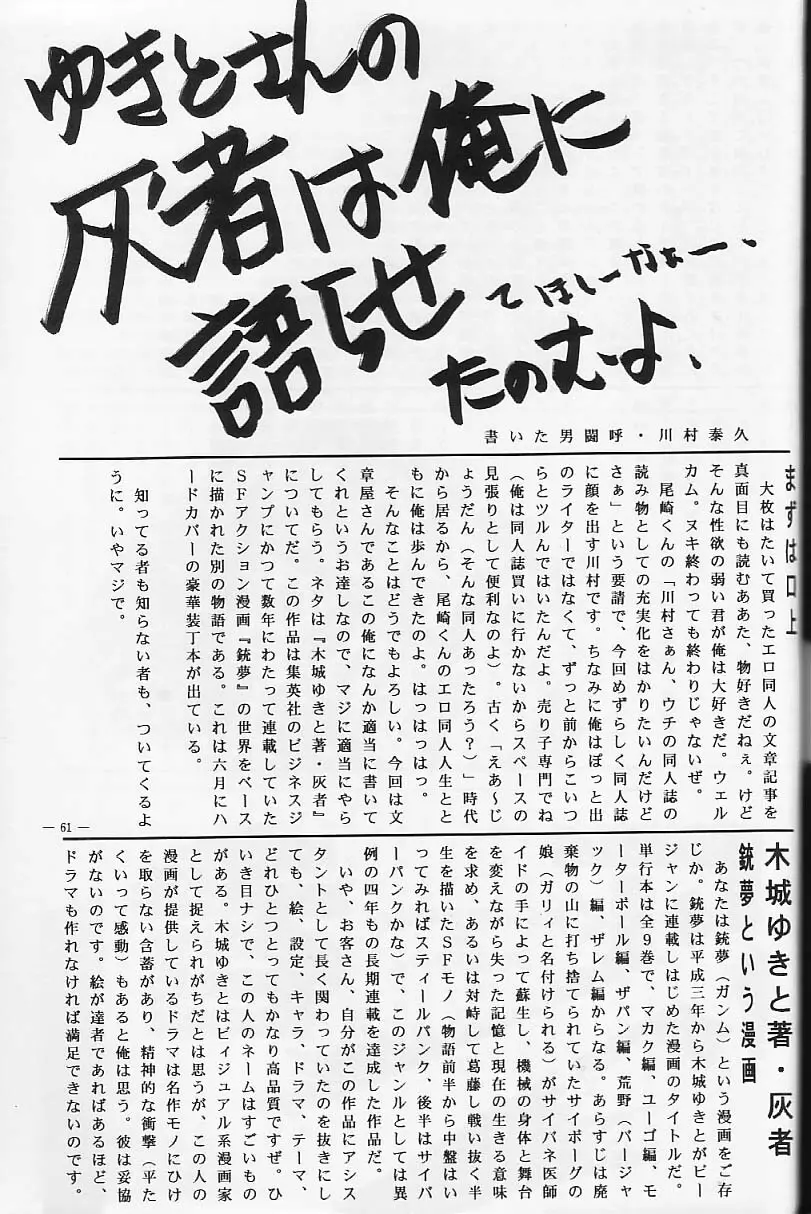 ゆきとさんの
灰者は俺に
語らせ
てほしーなぁー、
たのむよ、
書いた男闘呼・川村泰久
まずは口上
大枚はたいて買ったエロ同人の文章記事を
真面目にも読むああた、物好きだねぇ。けど
そんな性欲の弱い君が俺は大好きだ。ウェル
カム。ヌキ終わっても終わりじゃないぜ。
尾崎くんの「川村さぁん、ウチの同人誌の
読み物としての充実化をはかりたいんだけど
さぁ」という要請で、今回めずらしく同人誌
に顔を出す川村です。ちなみに俺はぽっと出
のライターではなくて、ずっと前からこいつ
らとツルんではいたんだよ。売り子専門でね
（俺は同人誌買いに行かないからスペースの
見張りとして便利なのよ）。古く「えあ〜じ
ょうだん（そんな同人あったろう？）」時代
から居るから、尾崎くんのエロ同人人生とと
もに俺は歩んできたのよ。はっはっはっ。
そんなことはどうでもよろしい。今回は文
章屋さんであるこの俺になんか適当に書いて
くれというお達しなので、マジに適当にやら
してもらう。ネタは『木城ゆきと著・灰者』
についてだ。この作品は集英社のビジネスジ
ャンプにかつて数年にわたって連載していた
ＳＦアクション漫画『銃夢』の世界をベース
に描かれた別の物語である。これは六月にハ
ードカバーの豪華装丁本が出ている。
知ってる者も知らない者も、ついてくるよ
うに。いやマジで。
― 61 ―
木城ゆきと著・灰者
銃夢という漫画
あなたは銃夢（ガンム）という漫画をご存
じか。銃夢は平成三年から木城ゆきとがビー
ジャンに連載しはじめた漫画のタイトルだ。
単行本は全９巻で、マカク編、ユーゴ編、モ
ーターボール編、ザパン編、荒野（バージャ
ック）編、ザレム編からなる。あらすじは廃
棄物の山に打ち捨てられていたサイボーグの
娘（ガリィと名付けられる）がサイバネ医師
イドの手によって蘇生し、機械の身体と舞台
を変えながら失った記憶と現在の生きる意味
を求め、あるいは対峙して葛藤し戦い抜く半
生を描いたＳＦモノ（物語前半から中盤はい
ってみればスティールパンク、後半はサイバ
ーパンクかな）で、このジャンルとしては異
例の四年もの長期連載を達成した作品だ。
いや、お客さん、自分がこの作品にアシス
タントとして長く関わっていたのを抜きにし
ても、絵、設定、キャラ、ドラマ、テーマ、
どれひとつとってもかなり高品質ですぜ。ひ
いき目ナシで、この人のネームはすごいもの
がある。木城ゆきとはビィジュアル系漫画家
として捉えられがちだとは思うが、この人の
漫画が提供しているドラマは名作モノにひけ
を取らない含蓄があり、精神的な衝撃（平た
くいって感動）もあると俺は思う。彼は妥協
がないのです。絵が達者であればあるほど、
ドラマも作れなければ満足できないのです。